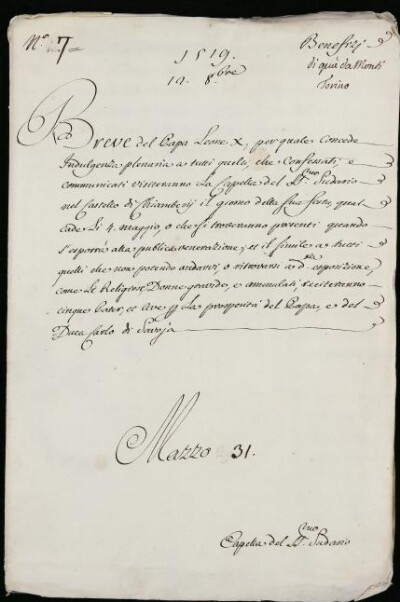 N.° 7
1519.
12. 8.bre
Benefizj
di quà da Monti
Torino
Breve del Papa Leone X, per quale concede
Indulgenza plenaria a tutti quelli, che confessati, e
communicati visiteranno La Capella del SS.mo Sudario
nel Castello di Chiamberj il giorno della sua festa, qual
cade Li 4. maggio, o che si troveranno presenti quando
s'esporrà alla publica venerazione; et il simile a tutti
quelli che non potendo andarci, o ritrovarsi a d.a esposizione,
come Le Religiose, Donne gravide, e ammalati, reciteranno
cinque Pater, et Ave per La prosperità del Papa, e del
Duca Carlo di Savoja
Mazzo 31.
Capella del SS.mo Sudario